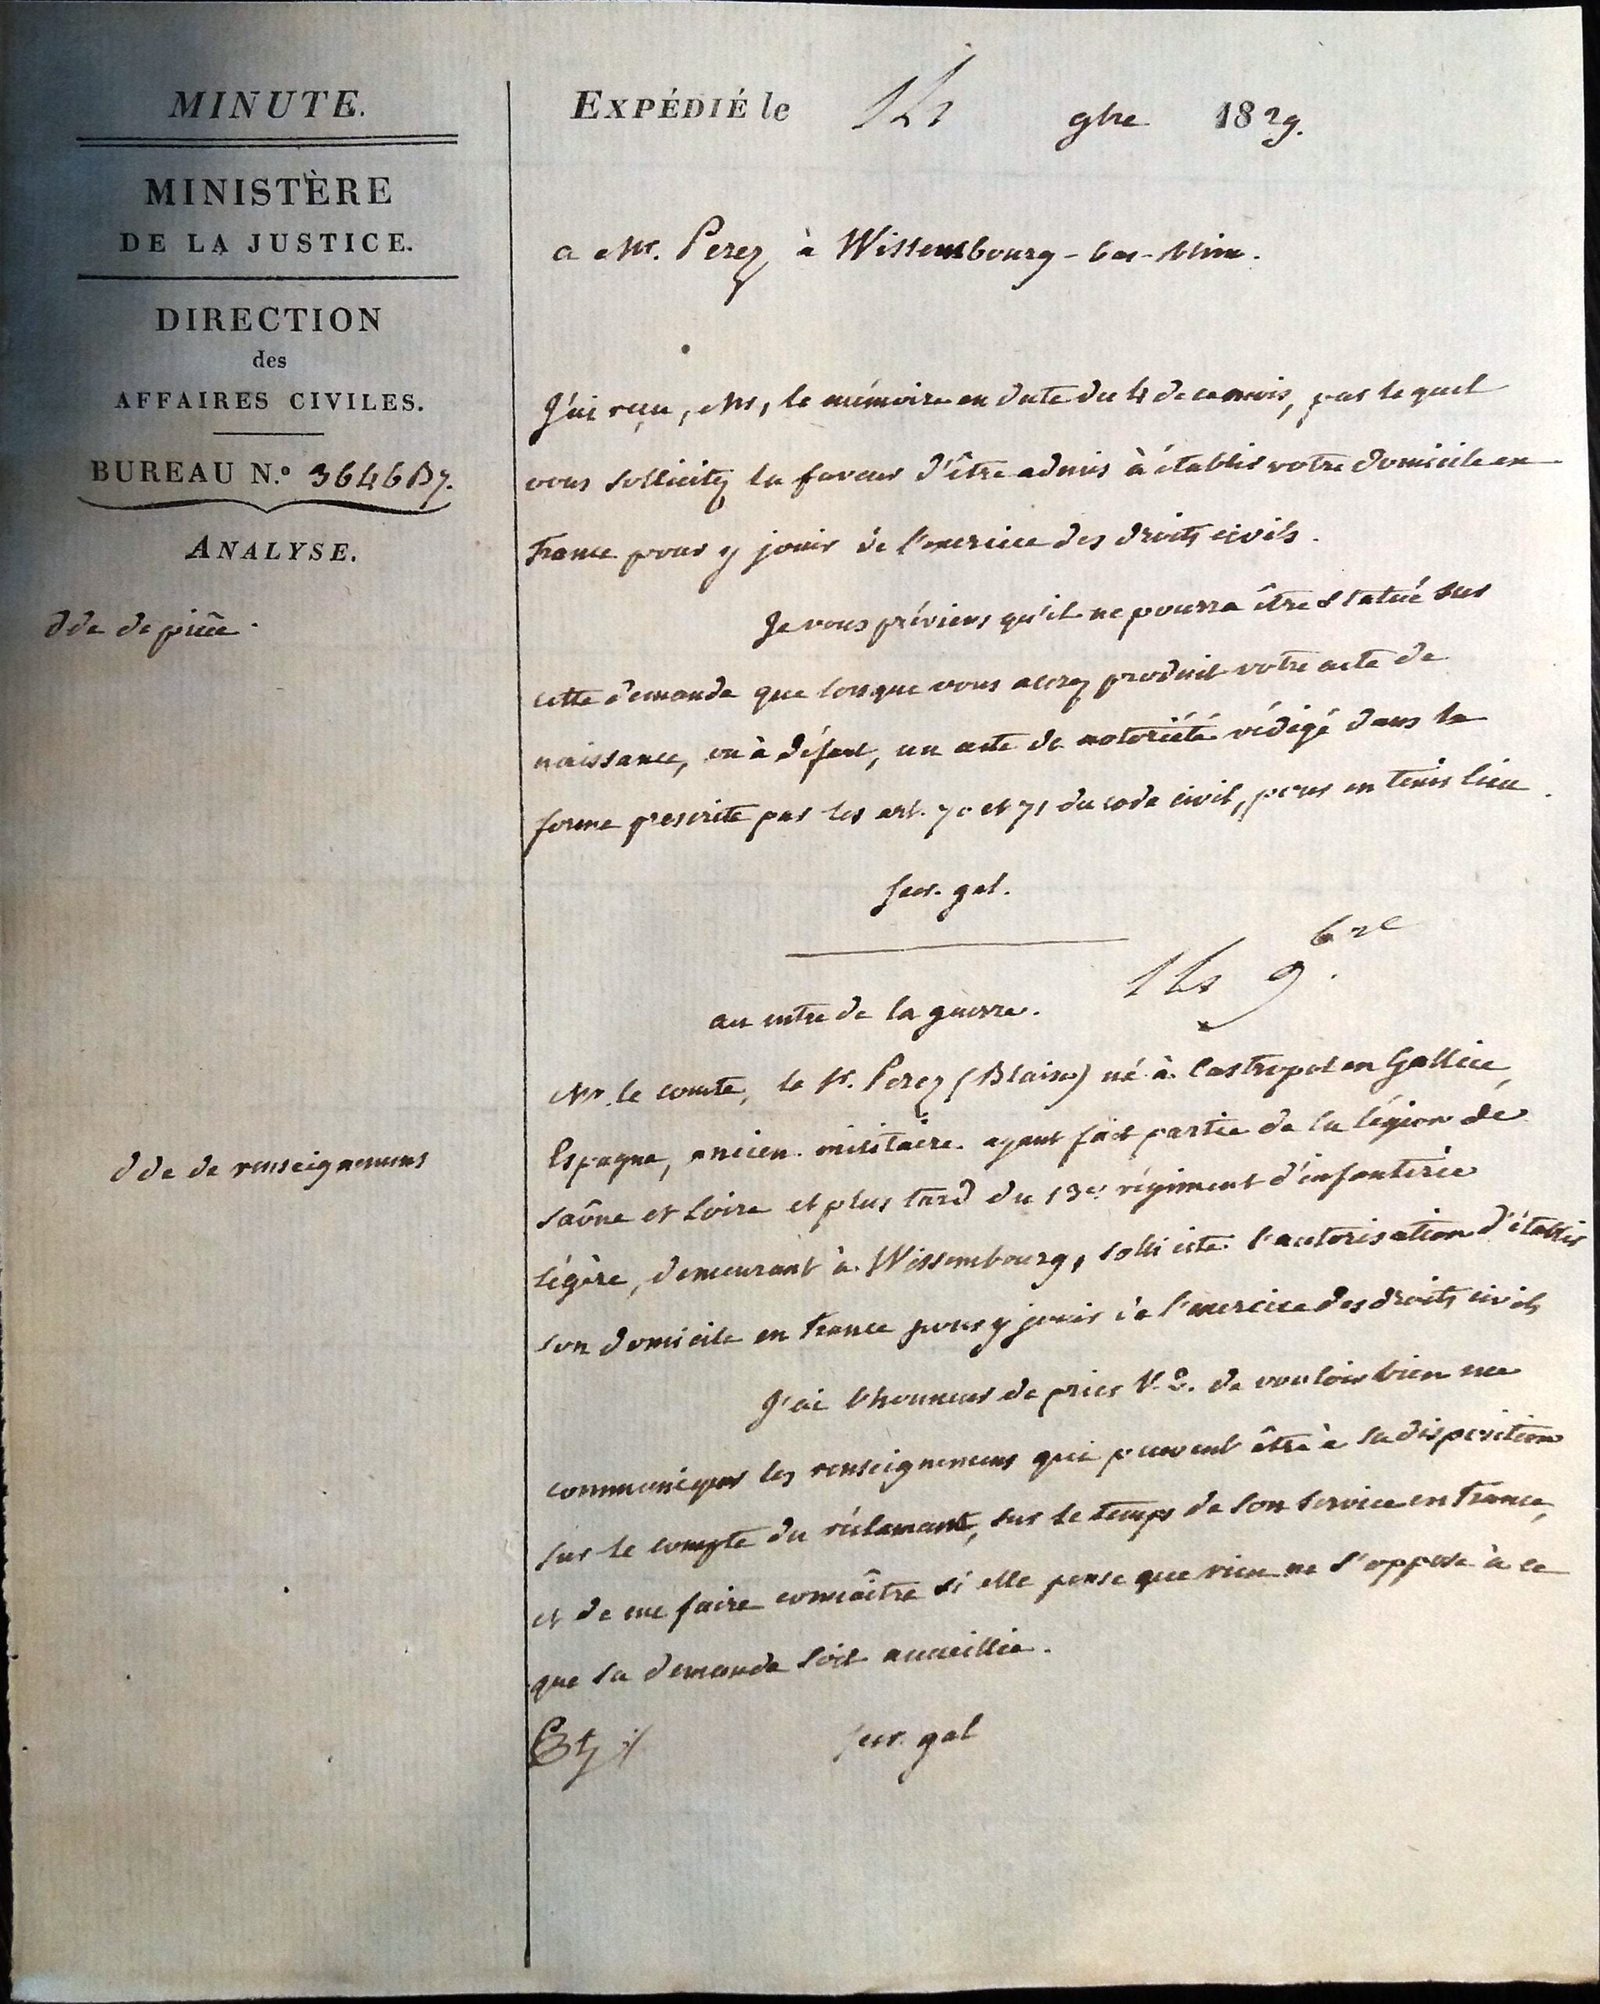 MINUTE.
MINISTÈRE
DE LA JUSTICE.
DIRECTION
des
AFFAIRES CIVILES.
BUREAU N.º 3646 B7.
ANALYSE.
dde de pièce.
dde de renseignemens
EXPÉDIÉ le 14 9bre 1829.
a Mr. Perez, à Wissembourg - bas-Rhin.
J'ai reçu, Mr, le mémoire en date du 4 de ce mois, par lequel
vous sollicitez la faveur d'être admis à établir votre domicile en
France pour y jouir de l'exercice des droits civils.
Je vous préviens qu'il ne pourra être statué sur
cette demande que lorsque vous aurez produit votre acte de
naissance, ou à défaut, un acte de notoriété rédigé dans la
forme prescrite par les art. 70 et 71 du code civil, pour en tenir lieu.
Secr. gal.
14 9bre
au mtre de la guerre.
Mr. le comte, le Sr. Perez (Blaise) né à Castropol en Gallice,
Espagne, ancien militaire ayant fait partie de la légion de
Saône et Loire et plus tard du 13e régiment d'infanterie
légère, demeurant à Wissembourg, sollicite l'autorisation d'établir
son domicile en France pour y jouir de l'exercice des droits civils
J'ai l'honneur de prier V. E. de vouloir bien me
communiquer les renseignemens qui peuvent être à sa disposition
sur le compte du réclamant, sur le temps de son service en France,
et de me faire connaître si elle pense que rien ne s'oppose à ce
que sa demande soit accueillie.
Secr. gal